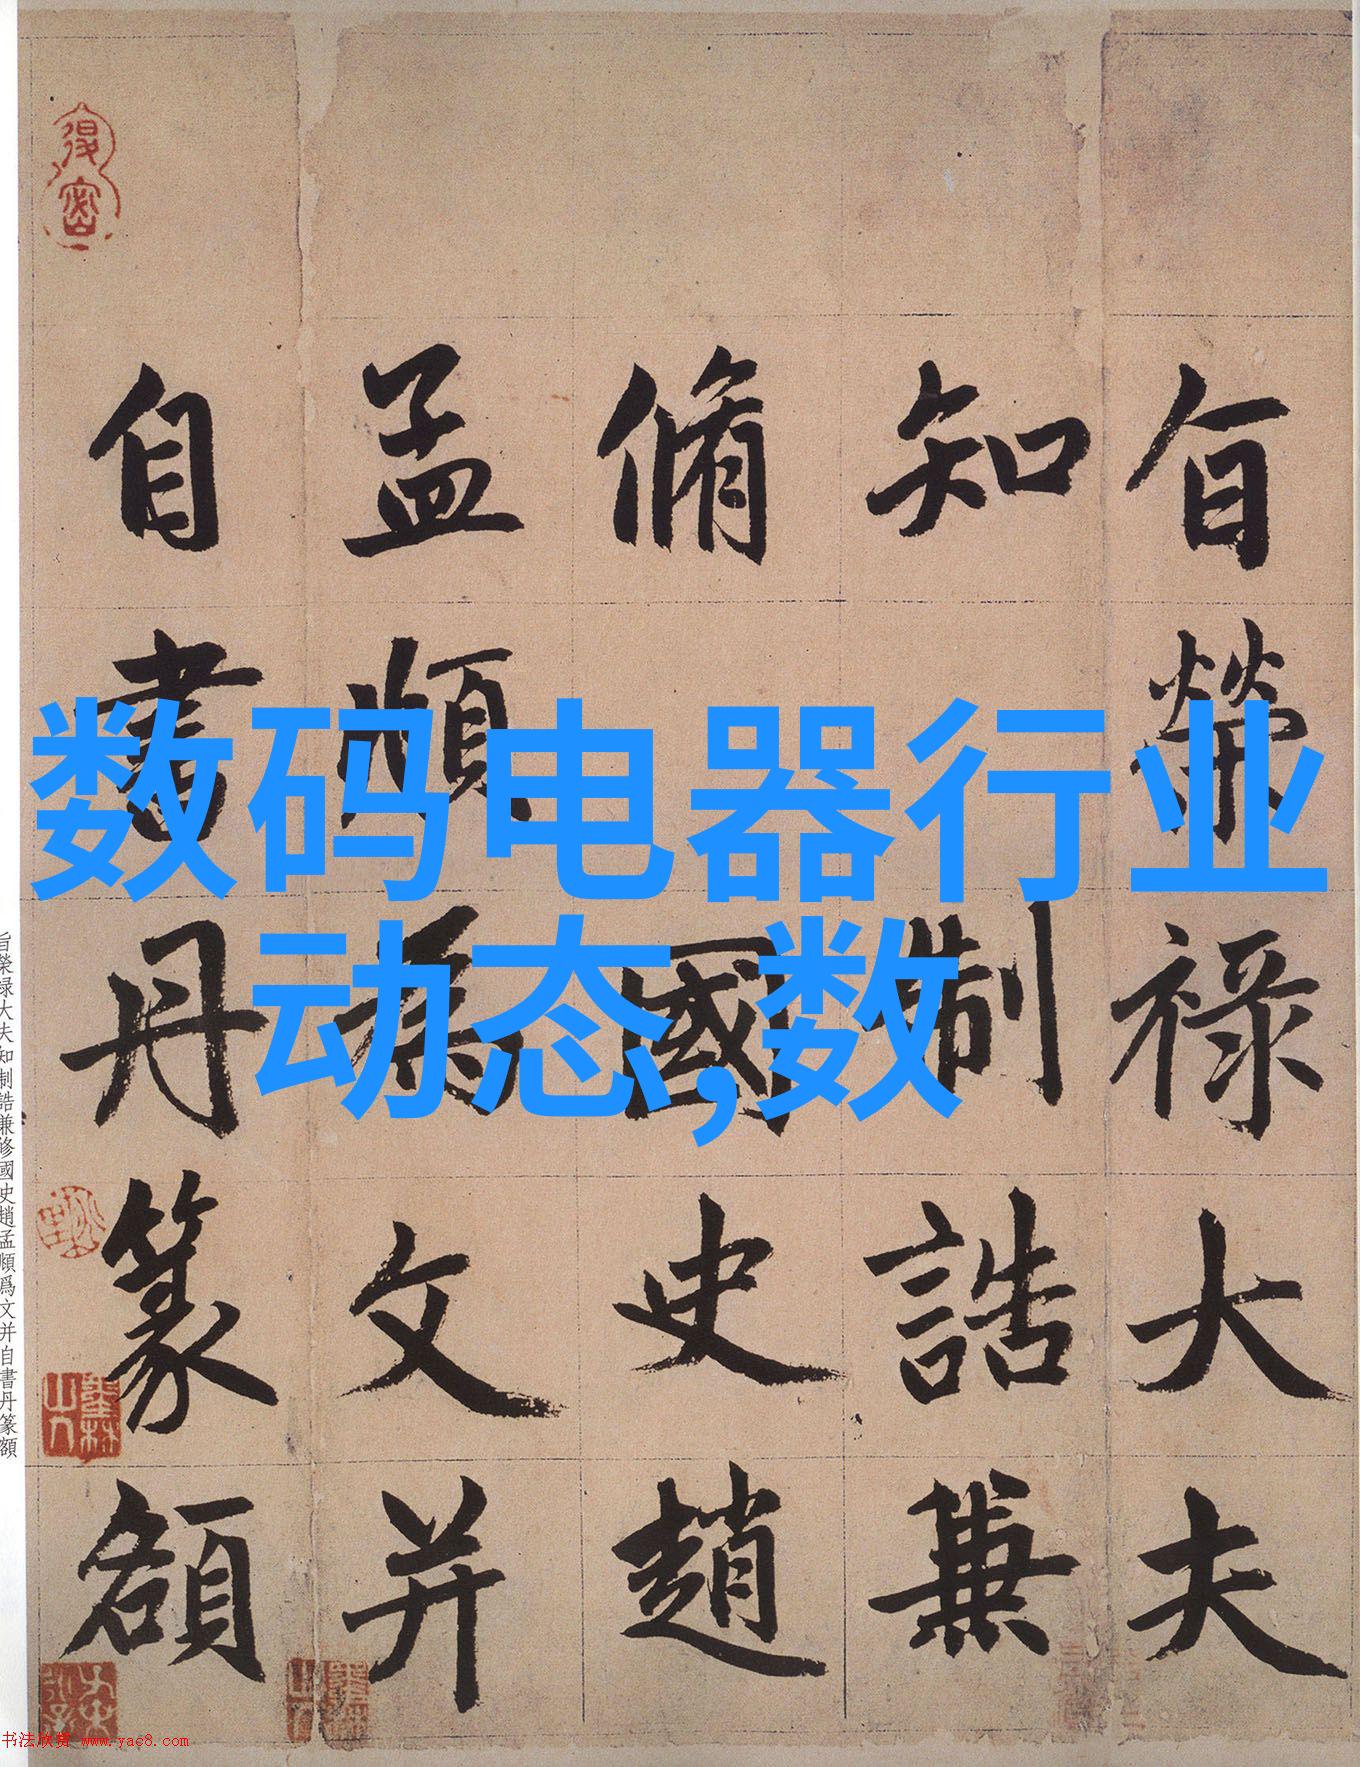 旨榮禄大夫
知制誥兼
脩國史趙
孟頫為文并
自書丹篆額
数码电器行业
动态,数
旨榮禄大夫知制誥兼修國史趙孟頫爲文并自書丹篆額
书法欣赏 www.yac8.com